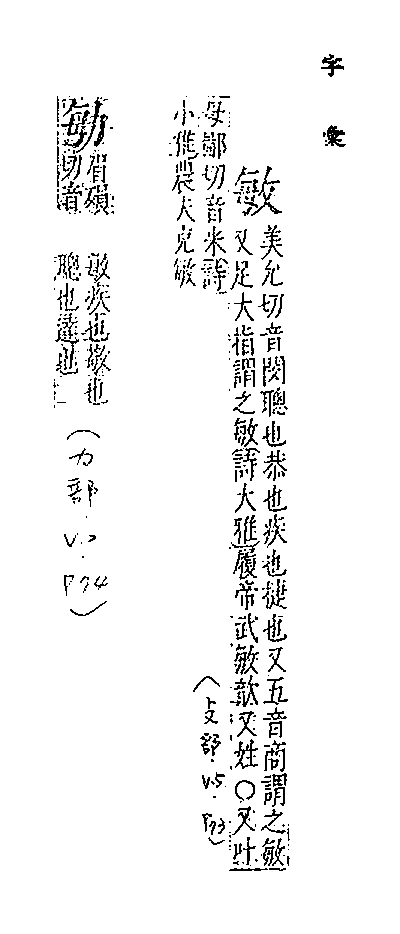 字彙
敏 美允切音閔聰也恭也疾也捷也又五音商謂之敏
又足大指謂之敏詩大雅履帝武敏歆又姓○又叶
母鄙切音米詩
小雅農夫克敏
(攴部.v.5.P.73)
勄 眉殞
切音
敏疾也敬也
聰也達也
(力部.v.2.P.74)